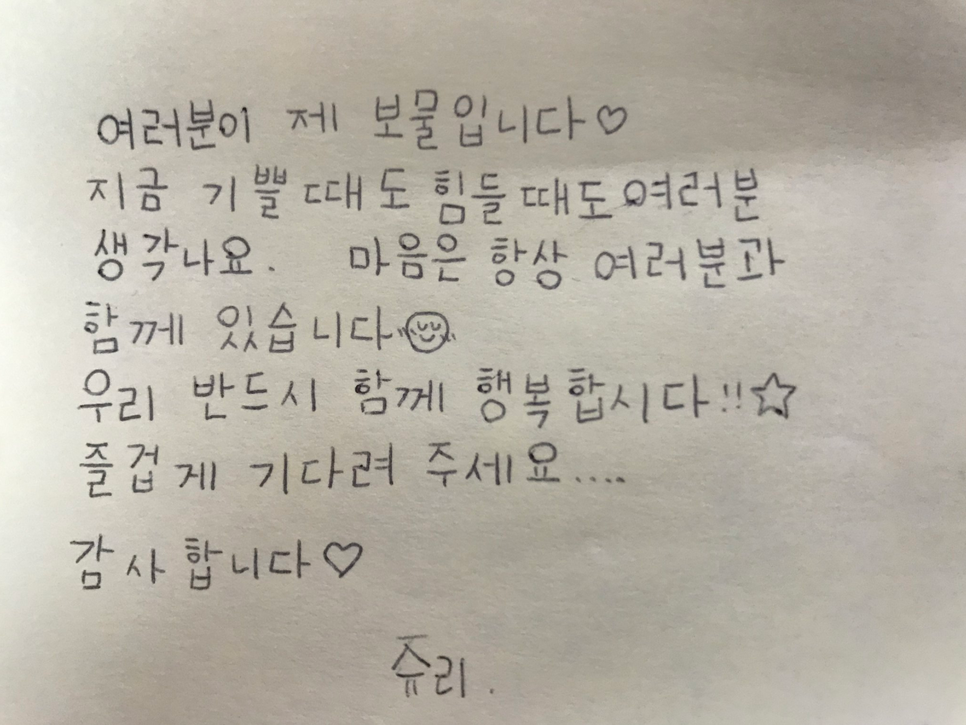 여러분이 제 보물입니다♡
지금 기쁠 때도 힘들 때도 여러분
생각나요. 마음은 항상 여러분과
함께 있습니다
우리 반드시 함께 행복합시다!!☆
즐겁게 기다려 주세요....
감사합니다♡
쥬리.